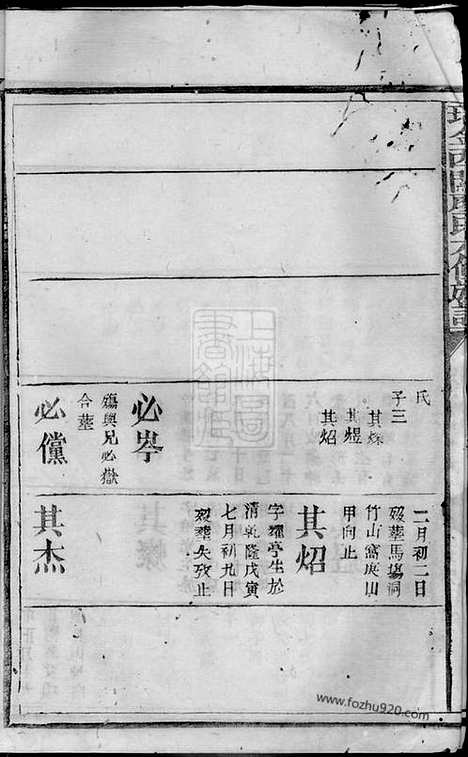 西關
氏
修族譜
氏
子三
其
其煜
其炤
必岑
殤與兄必嶽
合塟
必儻
二月初二日
歿塟馬塲洞
竹山窩庚山
甲向止
其炤
字耀亭生於
清乾隆戊寅
七月初九日
歿塟失攷止
其杰
上海圖
書館藏
www.fozhu920.com